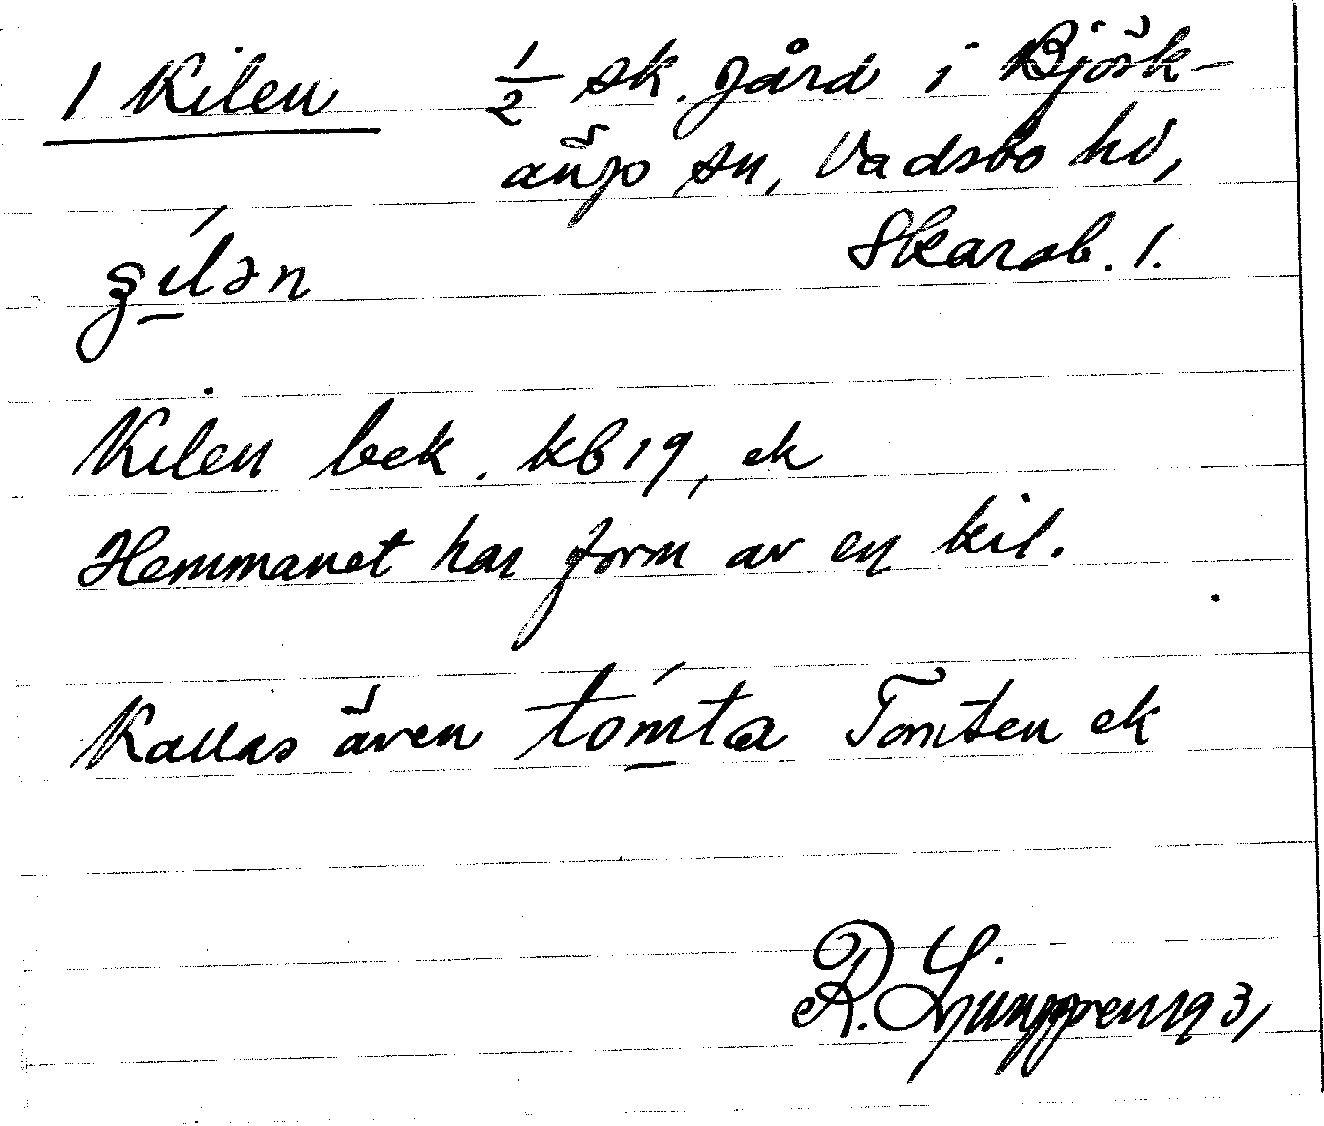 1 Kilen 1/2 sk. gård i Björk-
ängs sn, Vadsbo hd,
Skarab. l.
Kilen bek. kb 19, ek
Hemmanet har form av en kil.
Kallas även tómta Tomten ek
R. Ljunggren 1931